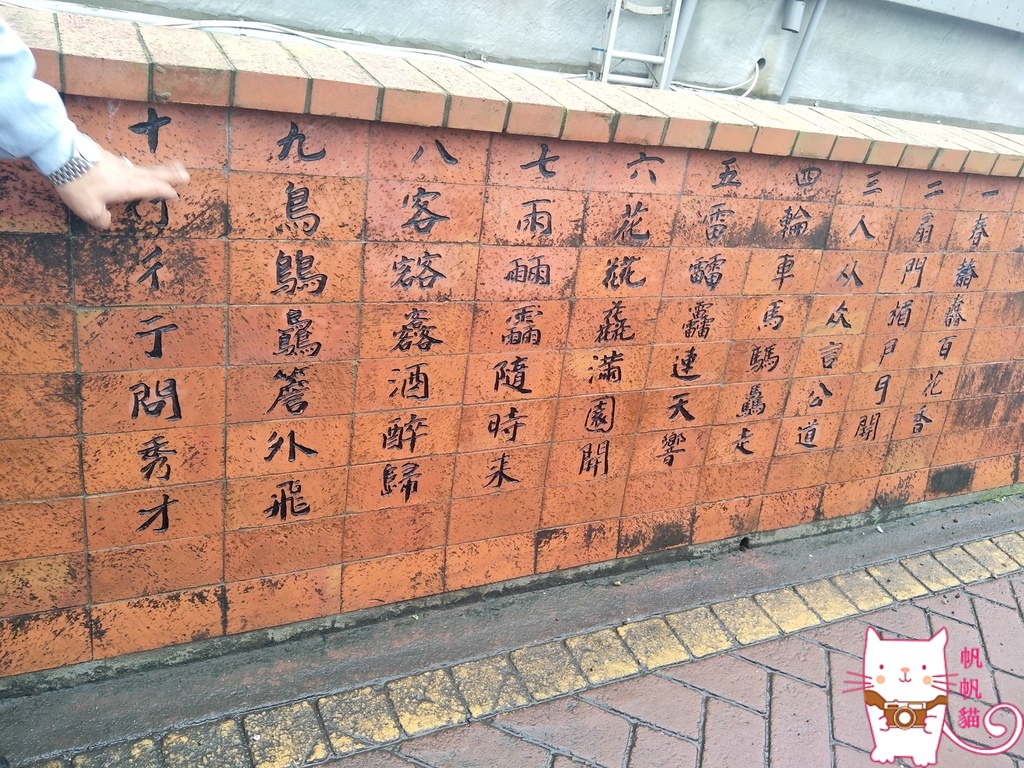 一春百花香
二扇門戶開
三人从众言公道
四輪車馬轟走
五雷靐連天響
六花滿園開
七雨隨時来
八客酒醉歸
九鳥簷外飛
十行彳亍問秀才
帆帆貓